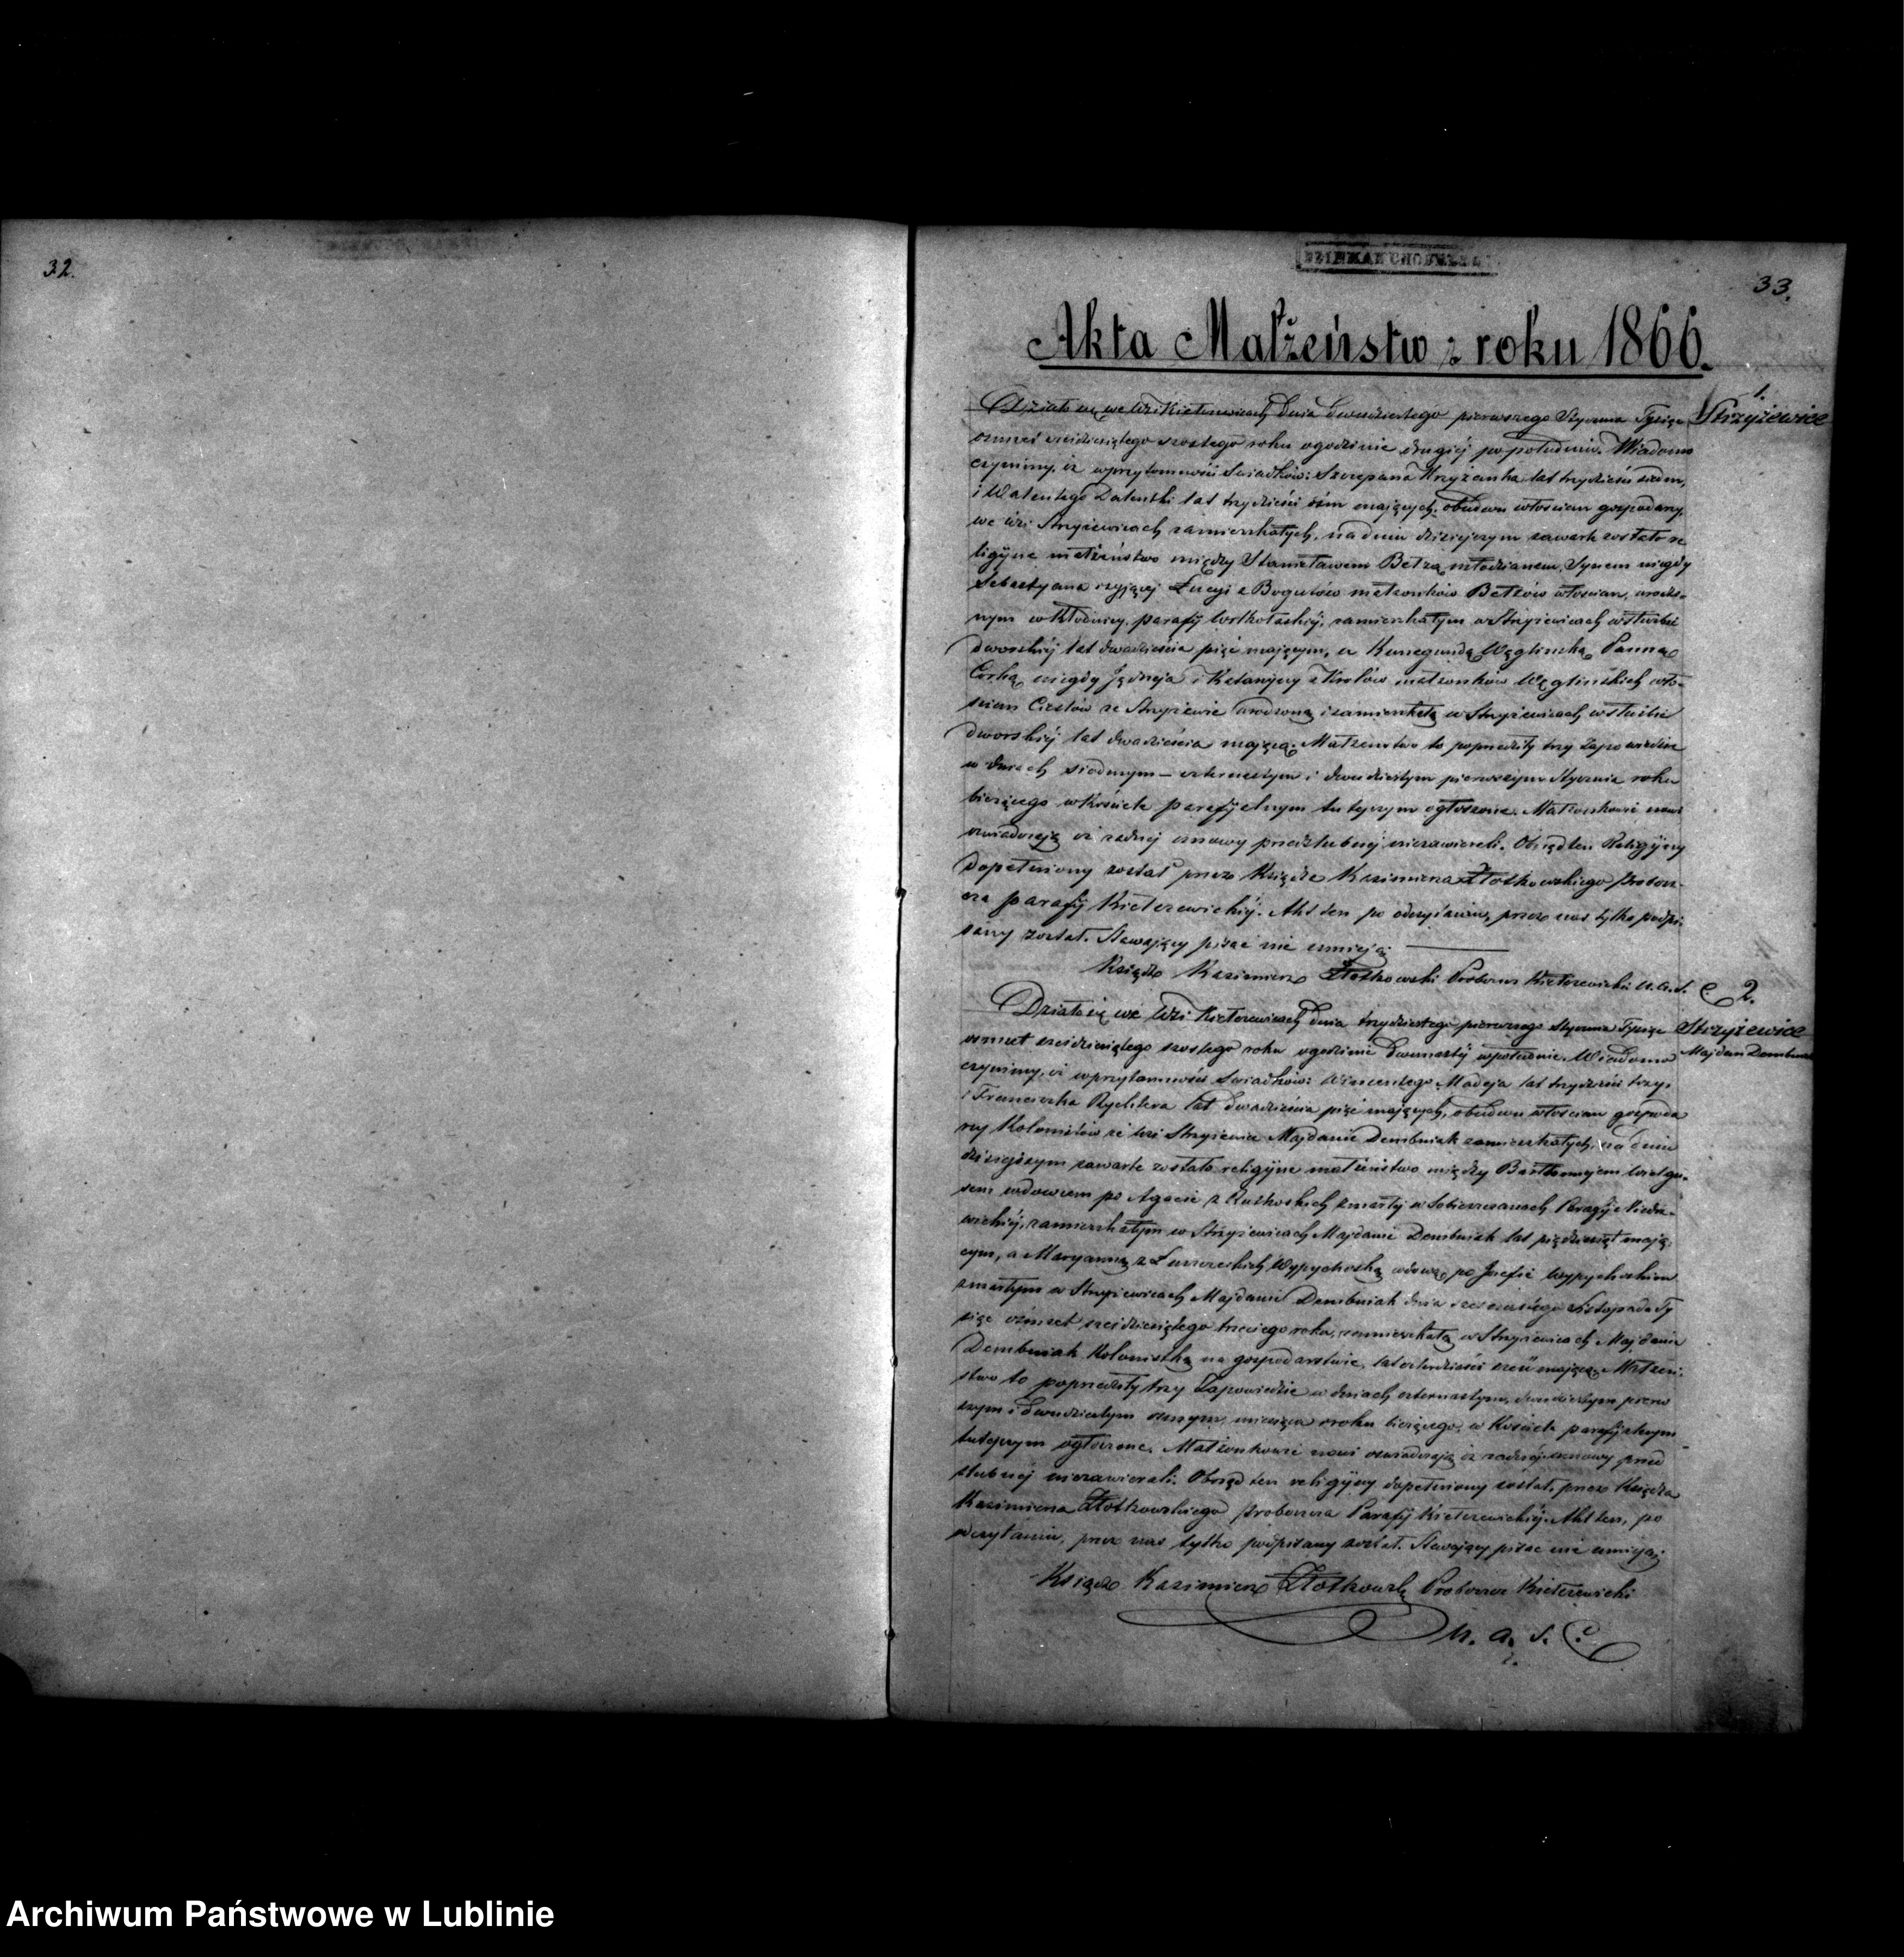 32.
DZIEKAN CHODELSKI
33.
Akta Małżeństw z roku 1866.
1.
Strzyżewice
Działo się we Wsi Kiełczewicach dnia dwudziestego pierwszego Stycznia Tysiąc
ośmset sześćdziesiątego szóstego roku o godzinie drugiéj po południu. Wiadomo
czynimy, iż w przytomności Świadków: Szczepana Krzyżanka lat trzydzieści siedm,
i Walentego lat trzydzieści ośm mających, obudwu włościan gospodarzy
we wsi Strzyżewicach zamieszkałych, na dniu dzisiejszym zawarte zostało re
ligijne małżeństwo między Stanisławem Bełzą młodzianem, Synem niegdy
Sebastyana i żyjącej Łucyi z Bogutów małżonków Bełzów włościan, urodzo-
nym w Kłodnicy, parafij Wilkołaskiéj, zamieszkałym w Strzyżewicach w służbie
dworskiéj lat dwadzieścia pięć mającym, a Kunegundą Węglinską Panną
Córką niegdy Jędrzeja i Katarzyny z Królów małżonków Węglińskich wło-
ścian Cieślów ze Strzyżewic urodzoną i zamieszkałą w Strzyżewicach w służbie
dworskiéj lat dwadzieścia mającą. Małżeństwo to poprzedziły trzy Zapowiedzie
w dniach siódmym – czternastym i dwudziestym pierwszym Stycznia roku
bieżącego w Kościele parafijalnym tutejszym ogłoszone. Małżonkowie nowi
oświadczają iż żadnéj umowy przedślubnéj niezawierali. Obrząd ten Religijny
dopełniony został przez Księdza Kazimierza Złotkowskiego Probosz-
cza parafij Kiełczewickiéj. Akt ten po odczytaniu, przez nas tylko podpi-
sany został. Stawający pisać nie umieją.
Ksiądz Kazimierz Złotkowski Proboszcz Kiełczewicki U. A. S. C.
2.
Strzyżewice
Majdan Dembniak
Działo się we Wsi Kiełczewicach dnia trzydziestego pierwszego Stycznia Tysiąc
ośmset sześćdziesiątego szóstego roku o godzinie dwunastéj w południe. Wiadomo
czynimy, iż w przytomności Świadków: Wincentego Madeja lat trzydzieści trzy,
i Franciszka Rychtera lat dwadzieścia pięć mających, obudwu włościan gospoda
rzy Kolonistów ze wsi Strzyżewic Majdanie Dembniak zamieszkałych, na dniu
dzisiejszym zawarte zostało religijne małżeństwo między Bartłomiejem Wielgo-
sem wdowcem po Agacie z Rutkoskich zmarłéj w Sobieszczanach Parafij Niedrz-
wickiéj, zamieszkałym w Strzyżewicach Majdanie Dembniak lat pięćdziesiąt mają-
cym, a Maryanną z Łuszczeskich Wypychoską wdową po Józefie Wypychoskim
zmarłym w Strzyżewicach Majdanie Dembniak dnia Listopada Ty
siąc ośmset sześćdziesiątego trzeciego roku, zamieszkałą w Strzyżewicach Majdanie
Dembniak Kolonistką na gospodarstwie, lat czterdzieści sześć mającą. Małżeń-
stwo to poprzedziły trzy Zapowiedzie w dniach czternastym, dwudziestym pierw
szym i dwudziestym ósmym, miesiąca i roku bieżącego, w Kościele parafijalnym
tutejszym ogłoszone. Małżonkowie nowi oświadczają iż żadnéj umowy przed
ślubnéj niezawierali. Obrząd ten religijny dopełniony został, przez Księdza
Kazimierza Złotkowskiego Proboszcza Parafij Kiełczewickiéj. Akt ten, po
odczytaniu, przez nas tylko podpisany został. Stawający pisać nie umieją.
Ksiądz Kazimierz Złotkowski Proboszcz Kiełczewicki
U. A. S. C.
Archiwum Państwowe w Lublinie